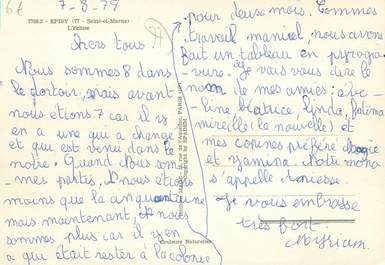 77982.2 - EPISY (77 - Seine-et-Marne)
L'écluse
7-8-79
chers tous.
Nous sommes 8 dans
le dortoir, mais avant
nous étions 7 car il y
en a une qui a changé
et qui est venue dans la
notre. Quand nous som-
-mes partis, nous étions
moins que la cinquantaine
mais maintenant, nous
sommes plus car il y en
a qui était rester à la colonie
pour deux mois. Comme
travail manuel, nous avons
fait un tableau en pyrogra-
vure. Je vais vous dire le
nom de mes amies:
-line, béatrice, linda, fatima
mireille (la nouvelle) et
mes copines préféré
et yamina. Notre mono
s'appelle
Je vous embrasse
très fort.
Myriam.
Couleurs Naturelles